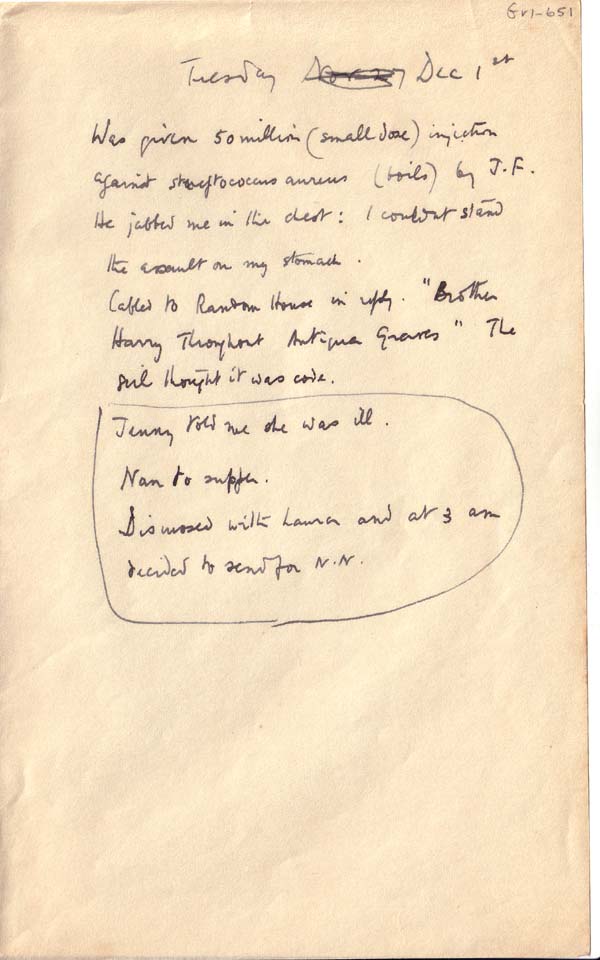 GV1-651
Tuesday Dec 1st
Was given 50 million (small dose) injection
against streptococcus aureus (boils) by J.F.
He jabbed me in the chest: I couldnt stand
the assault on my stomach.
Cabled to Random House in reply. "Brother
Harry Throughout Antigua Graves" The
girl thought it was code.
Jenny told me she was ill.
Nan to supper.
Discussed with Laura and at 3 am
decided to send for N.N.